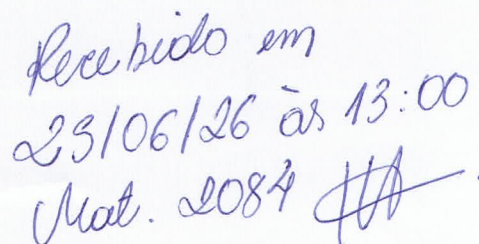 Recebido em
23/06/26 às 13:00
Mat. 2084